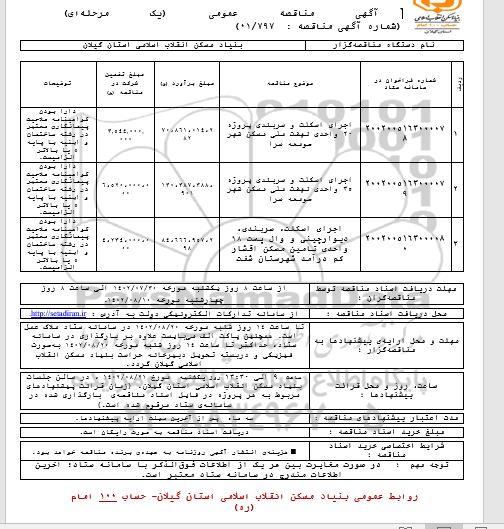 آگهی مناقصه عمومی (یک مرحله‌ای)
(شماره آگهی مناقصه : ۰۱/۷۹۷)
نام دستگاه مناقصه‌گزار
بنیاد مسکن انقلاب اسلامی استان گیلان
ردیف
شماره فراخوان در سامانه ستاد
موضوع مناقصه
مبلغ برآورد
مبلغ تضمین شرکت در مناقصه
توضیحات
۱
اجرای اسکلت و سربندی پروژه ۲۰ واحدی نهضت ملی مسکن شهر صومعه سرا
دارا بودن گواهینامه صلاحیت پیمانکاری معتبر در رشته ساختمان و ابنیه با پایه ۵ یا بالاتر الزامیست.
۲
اجرای اسکلت و سربندی پروژه ۳۵ واحدی نهضت ملی مسکن شهر صومعه سرا
دارا بودن گواهینامه صلاحیت پیمانکاری معتبر در رشته ساختمان و ابنیه با پایه ۵ یا بالاتر الزامیست.
۳
اجرای اسکلت، سربندی، دیوارچینی و وال پست ۱۸ واحدی تامین مسکن اقشار کم درآمد شهرستان شفت
دارا بودن گواهینامه صلاحیت پیمانکاری معتبر در رشته ساختمان و ابنیه با پایه ۵ یا بالاتر الزامیست.
مهلت دریافت اسناد مناقصه توسط مناقصه‌گران :
از ساعت ۸ روز یکشنبه مورخه ۱۴۰۲/۰۷/۳۰ الی ساعت ۸ روز چهارشنبه مورخه ۱۴۰۲/۰۸/۱۰.
محل دریافت اسناد مناقصه :
از سامانه تدارکات الکترونیکی دولت به آدرس : http://setadiran.ir.
مهلت و محل ارایه‌ی پیشنهادها به مناقصه‌گزار :
تا ساعت ۱۴ روز شنبه مورخه ۱۴۰۲/۰۸/۲۰ در سامانه ستاد ملاک عمل است. همچنین پاکت الف می‌بایست علاوه بر بارگذاری در سامانه ستاد، حداکثر تا ساعت ۱۴ روز شنبه مورخه ۱۴۰۲/۰۸/۲۰ به‌صورت فیزیکی و دربسته تحویل دبیرخانه حراست بنیاد مسکن انقلاب اسلامی گیلان گردد.
ساعت، روز و محل قرائت پیشنهادها :
ساعت ۹ الی ۱۳:۳۰ روز یکشنبه مورخ ۱۴۰۲/۰۸/۲۱ ، در سالن جلسات بنیاد مسکن انقلاب اسلامی استان گیلان. (زمان قرائت پیشنهادهای مربوط به هر پروژه در فایل اسناد مناقصه‌ی بارگذاری شده در سامانه‌ی ستاد مرقوم شده است )
مدت اعتبار پیشنهادهای مناقصه :
سه ماه پس از آخرین مهلت ارایه پیشنهادها.
مبلغ خرید اسناد مناقصه :
دریافت اسناد مناقصه به صورت رایگان است.
شرایط اختصاصی خرید اسناد مناقصه :
■ هزینه‌ی انتشار آگهی روزنامه به عهده‌ی برنده مناقصه خواهد بود.
توجه مهم : در صورت مغایرت بین هر یک از اطلاعات فوق‌الذکر با سامانه ستاد؛ آخرین اطلاعات مندرج در سامانه ستاد معتبر است.
روابط عمومی بنیاد مسکن انقلاب اسلامی استان گیلان- حساب ۱۰۰ امام (ره)